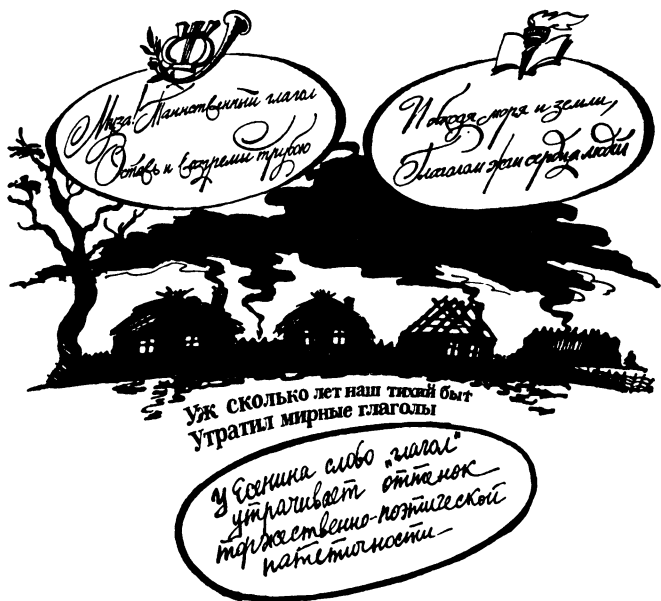 Муза! Таинственный глагол
Оставь и возгреми трубою
И обходя моря и земли,
Глаголом жги сердца людей
Уж сколько лет наш тихий быт
Утратил мирные глаголы
У Есенина слово „глагол“
утрачивает оттенок
торжественно-поэтической
патетичности—